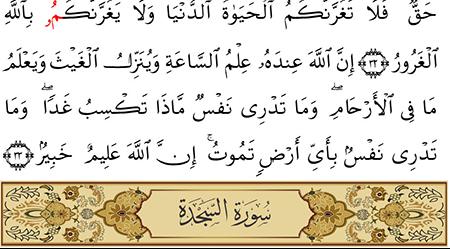 حَقٌّ فَلَا تَغُرَّنَّكُمُ ٱلْحَيَوٰةُ ٱلدُّنْيَا وَلَا يَغُرَّنَّكُمُۥ بِٱللَّهِ
ٱلْغَرُورُ ٣٢ إِنَّ ٱللَّهَ عِندَهُۥ عِلْمُ ٱلسَّاعَةِ وَيُنَزِّلُ ٱلْغَيْثَ وَيَعْلَمُ
مَا فِي ٱلْأَرْحَامِۖ وَمَا تَدْرِى نَفْسٌ مَّاذَا تَكْسِبُ غَدًاۖ وَمَا
تَدْرِى نَفْسٌۢ بِأَىِّ أَرْضٍ تَمُوتُۚ إِنَّ ٱللَّهَ عَلِيمٌ خَبِيرٌۢ ٣٣
سُورَةُ السَّجْدَةِ